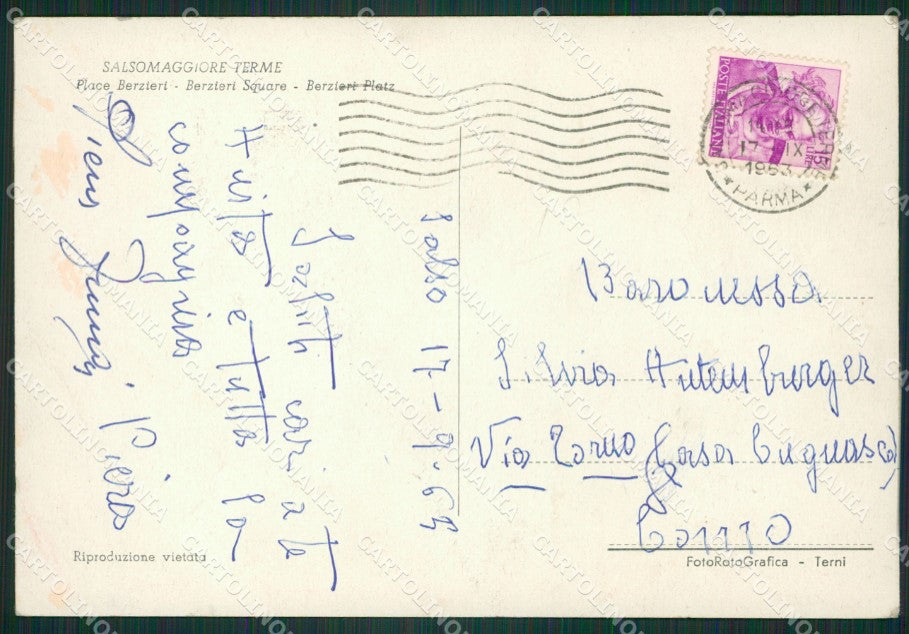 SALSOMAGGIORE TERME
Place Berzieri - Berzieri Square - Berzieri Platz
POSTE ITALIANE
17 IX
1963
* PARMA *
Salso 17-9-63
Saluti cari a te
e tutta la
compagnia
Piera
Baronessa
Silvia Hutemburger
Via Torno Casa Cuguasca
Como
Riproduzione vietata
FotoRotoGrafica - Terni
CARTOLINOMANIA